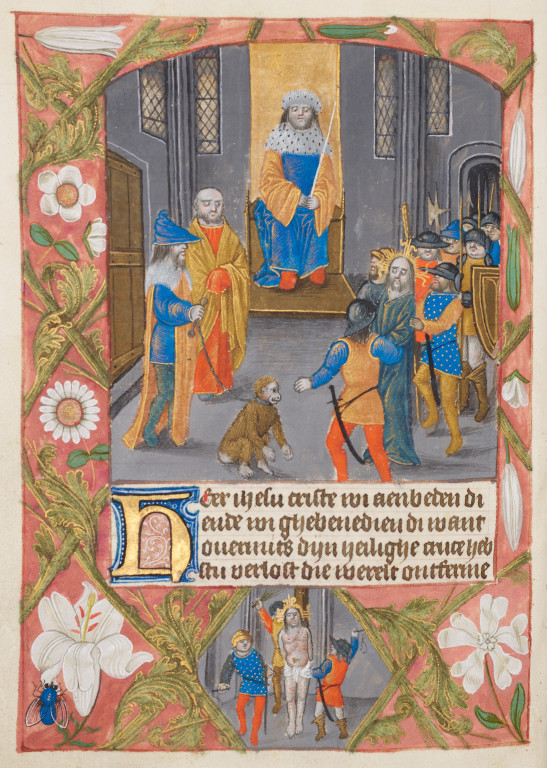 Heer ihesu criste wi aenbeden di
ende wi ghebenedien di want
ouermits dijn heilighe cruce heb
stu verlost die werelt ontferme